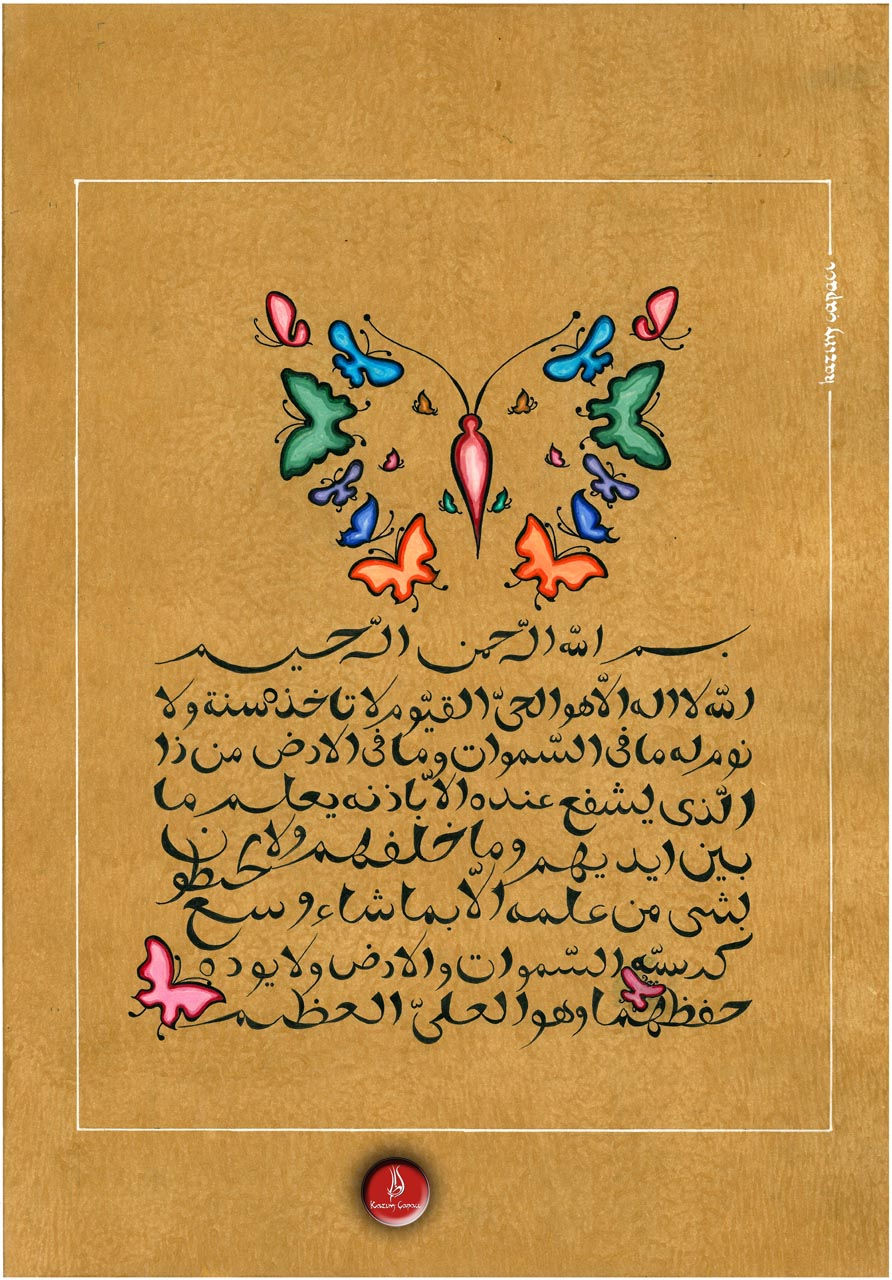 بسم الله الرّحمن الرّحيم
الله لا اله الّا هو الحىّ القيّوم لا تاخذه سنة ولا
نوم له ما فى السّموات وما فى الارض من ذا
الّذى يشفع عنده الّا باذنه يعلم ما
بين ايديهم وما خلفهم ولا يحيطون
بشى من علمه الّا بما شاء وسع
كرسيّه السّموات والارض ولا يوده
حفظهما وهو العلىّ العظيم
kazım çapacı
Kazım Çapacı